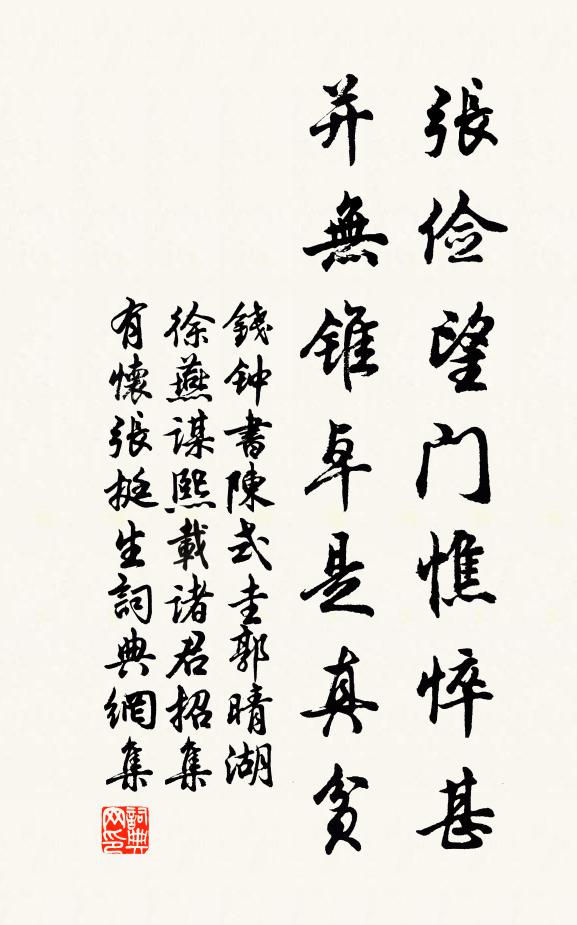 張俭望門憔悴甚
并無錐卓是真貧
錢钟書陳式圭郭晴湖
徐燕謀熙載诸君招集
有懷張挺生詞典網集
詞典网印